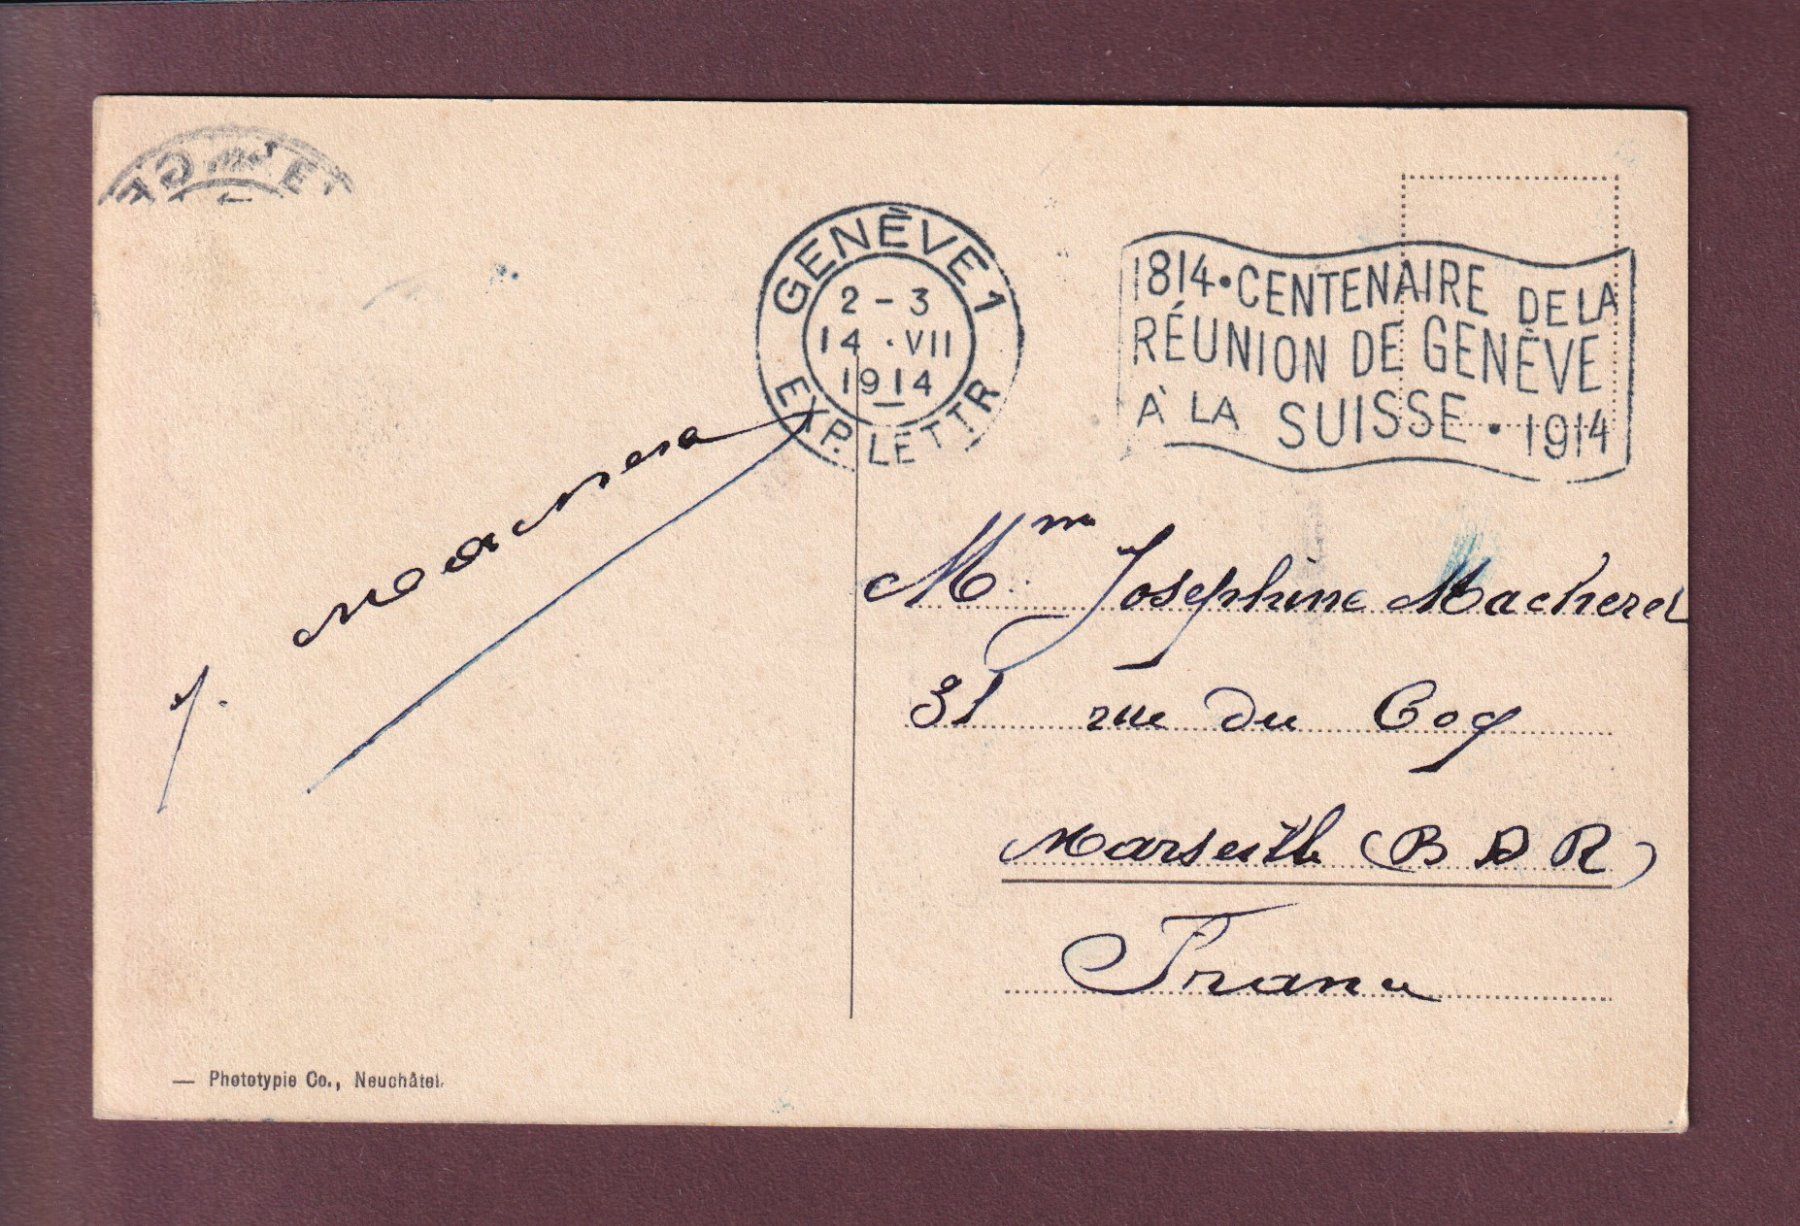 GENÈVE 1
2-3
14 · VII
1914
EXP. LETTR
1814 · CENTENAIRE DE LA
RÉUNION DE GENÈVE
À LA SUISSE · 1914
Mme Josephine Macherel
31 rue du Coq
Marseille (B D R)
France
— Phototypie Co., Neuchâtel.